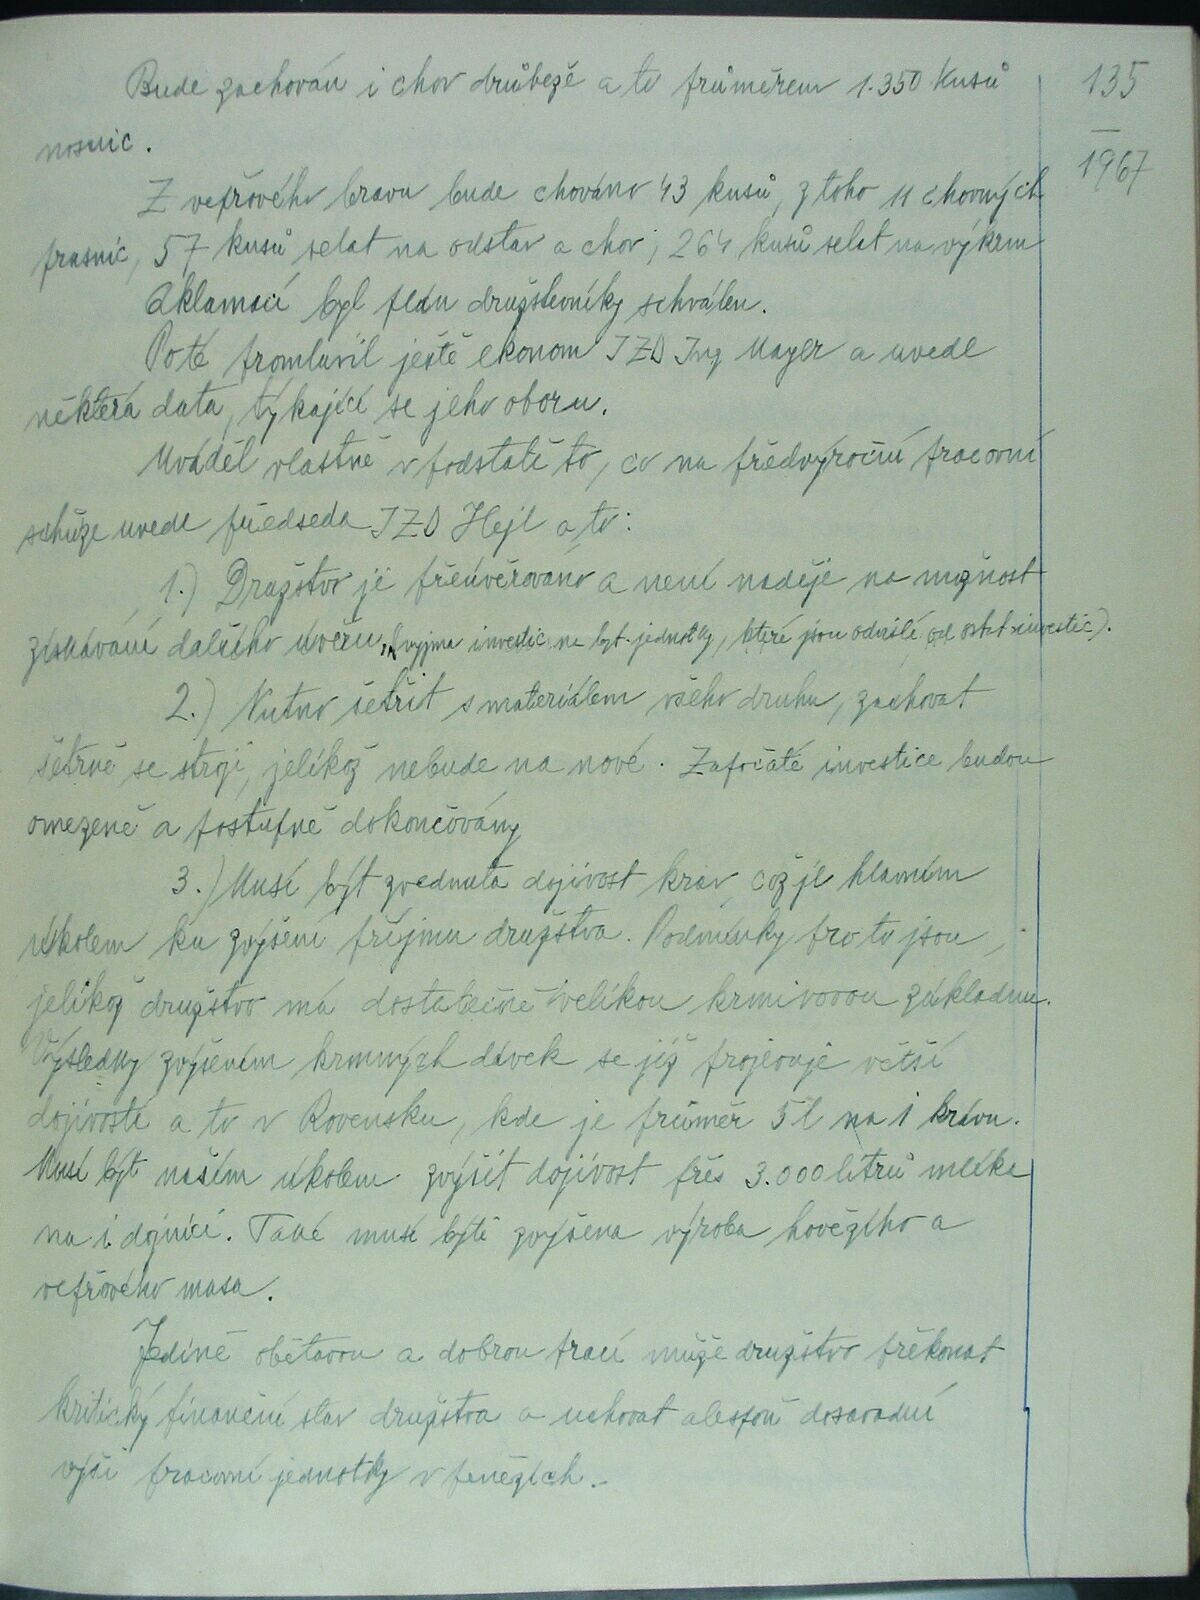 Bude zachován i chov drůbeže a to průměrem 1.350 kusů
135
nosnic.
1967
Z vepřového bravu bude chováno 43 kusů, z toho 11 chovných
prasnic, 57 kusů selat na odstav a chov, 264 kusů selat na výkrm
Aklamací byl plán družstevníky schválen.
Poté promluvil ještě ekonom JZD Ing Mayer a uvedl
některá data, týkající se jeho oboru.
Uváděl vlastně v podstatě to, co na předvýroční pracovní
schůze uvedl předseda JZD Hejl a to:
1.) Družstvo je přeúvěrováno a není naděje na možnost
získávání dalšího úvěru, (vyjma investic na byt. jednotky, které jsou odvislé od ostat. investic).
2.) Nutno šetřit s materiálem všeho druhu, zachovat
šetrně se stroji, jelikož nebude na nové. Započaté investice budou
omezeně a postupně dokončovány
3.) Musí být zvednuta dojivost krav, což je hlavním
úkolem ku zvýšení příjmu družstva. Podmínky pro to jsou,
jelikož družstvo má dostatečně velikou krmivovou základnu.
Výsledky zvýšením krmných dávek se již projevuje větší
dojivostí a to v Rovensku, kde je průměr 5 l na 1 krávu.
Musí být naším úkolem zvýšit dojivost přes 3.000 litrů mléka
na 1 dojnici. Také musí býti zvýšena výroba hovězího a
vepřového masa.
Jedině obětavou a dobrou prací může družstvo překonat
kritický finanční stav družstva a uchovat alespoň dosavadní
výši pracovní jednotky v penězích.-